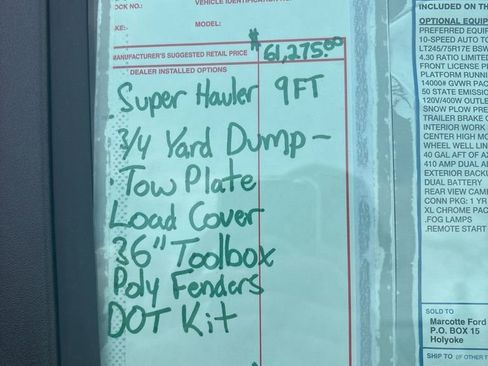 OCK NO.:
VEHICLE IDENTIFICATION
AKE:
MODEL:
MANUFACTURER'S SUGGESTED RETAIL PRICE $ 61,275.00
DEALER INSTALLED OPTIONS
Super Hauler 9FT
3/4 Yard Dump -
Tow Plate
Load Cover
36" Toolbox
Poly Fenders
DOT Kit
INCLUDED ON TH
OPTIONAL EQUIP
PREFERRED EQUIP
10-SPEED AUTO TO
LT245/75R17E BSW
4.30 RATIO LIMITED
FRONT LICENSE P
PLATFORM RUNNI
14000# GVWR PAC
50 STATE EMISSIO
120V/400W OUTLE
SNOW PLOW PRE
TRAILER BRAKE C
INTERIOR WORK
CENTER HIGH MO
WHEEL WELL LIN
40 GAL AFT OF AX
410 AMP DUAL AL
EXTERIOR BACKU
DUAL BATTERY
REAR VIEW CAME
CONN PKG: 1 YR
XL CHROME PAC
.FOG LAMPS
.REMOTE START
SOLD TO
Marcotte Ford
P.O. BOX 15
Holyoke
SHIP TO (IF OTHER T